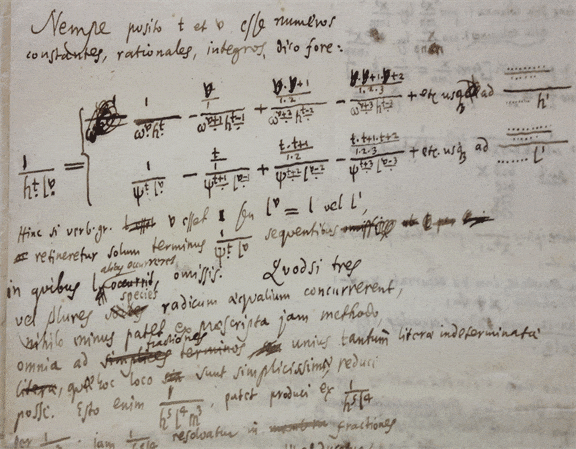 Nempe posito t et v esse numeros
constantes, rationales, integros, dico fore:
1/(h^t l^v) = { 1/(ω^v h^t) − (v/1)/(ω^(v+1) h^(t−1)) + (v·v+1/1·2)/(ω^(v+2) h^(t−2)) − (v·v+1·v+2/1·2·3)/(ω^(v+3) h^(t−3)) + etc. usq3 ad ....../h^1
1/(ψ^t l^v) − (t/1)/(ψ^(t+1) l^(v−1)) + (t·t+1/1·2)/(ψ^(t+2) l^(v−2)) − (t·t+1·t+2/1·2·3)/(ψ^(t+3) l^(v−3)) + etc. usq3 ad ....../l^1
Hinc si verb. gr. v esset 1 seu l^v = l vel l^1,
retineretur solum terminus 1/(ψ^t l^v) sequentibus
in quibus l abesset occurreret omissis. Quodsi tres
vel plures species radicum aequalium concurrerent,
nihilo minus patet ex praescripta jam methodo,
omnia ad fractiones terminos unius tantum litera indeterminata
loco sunt simplicissimis reduci
posse. Esto enim 1/(h^5 l^4 m^3), patet produci ex 1/(h^5 l^4)
jam resolvatur in fractiones